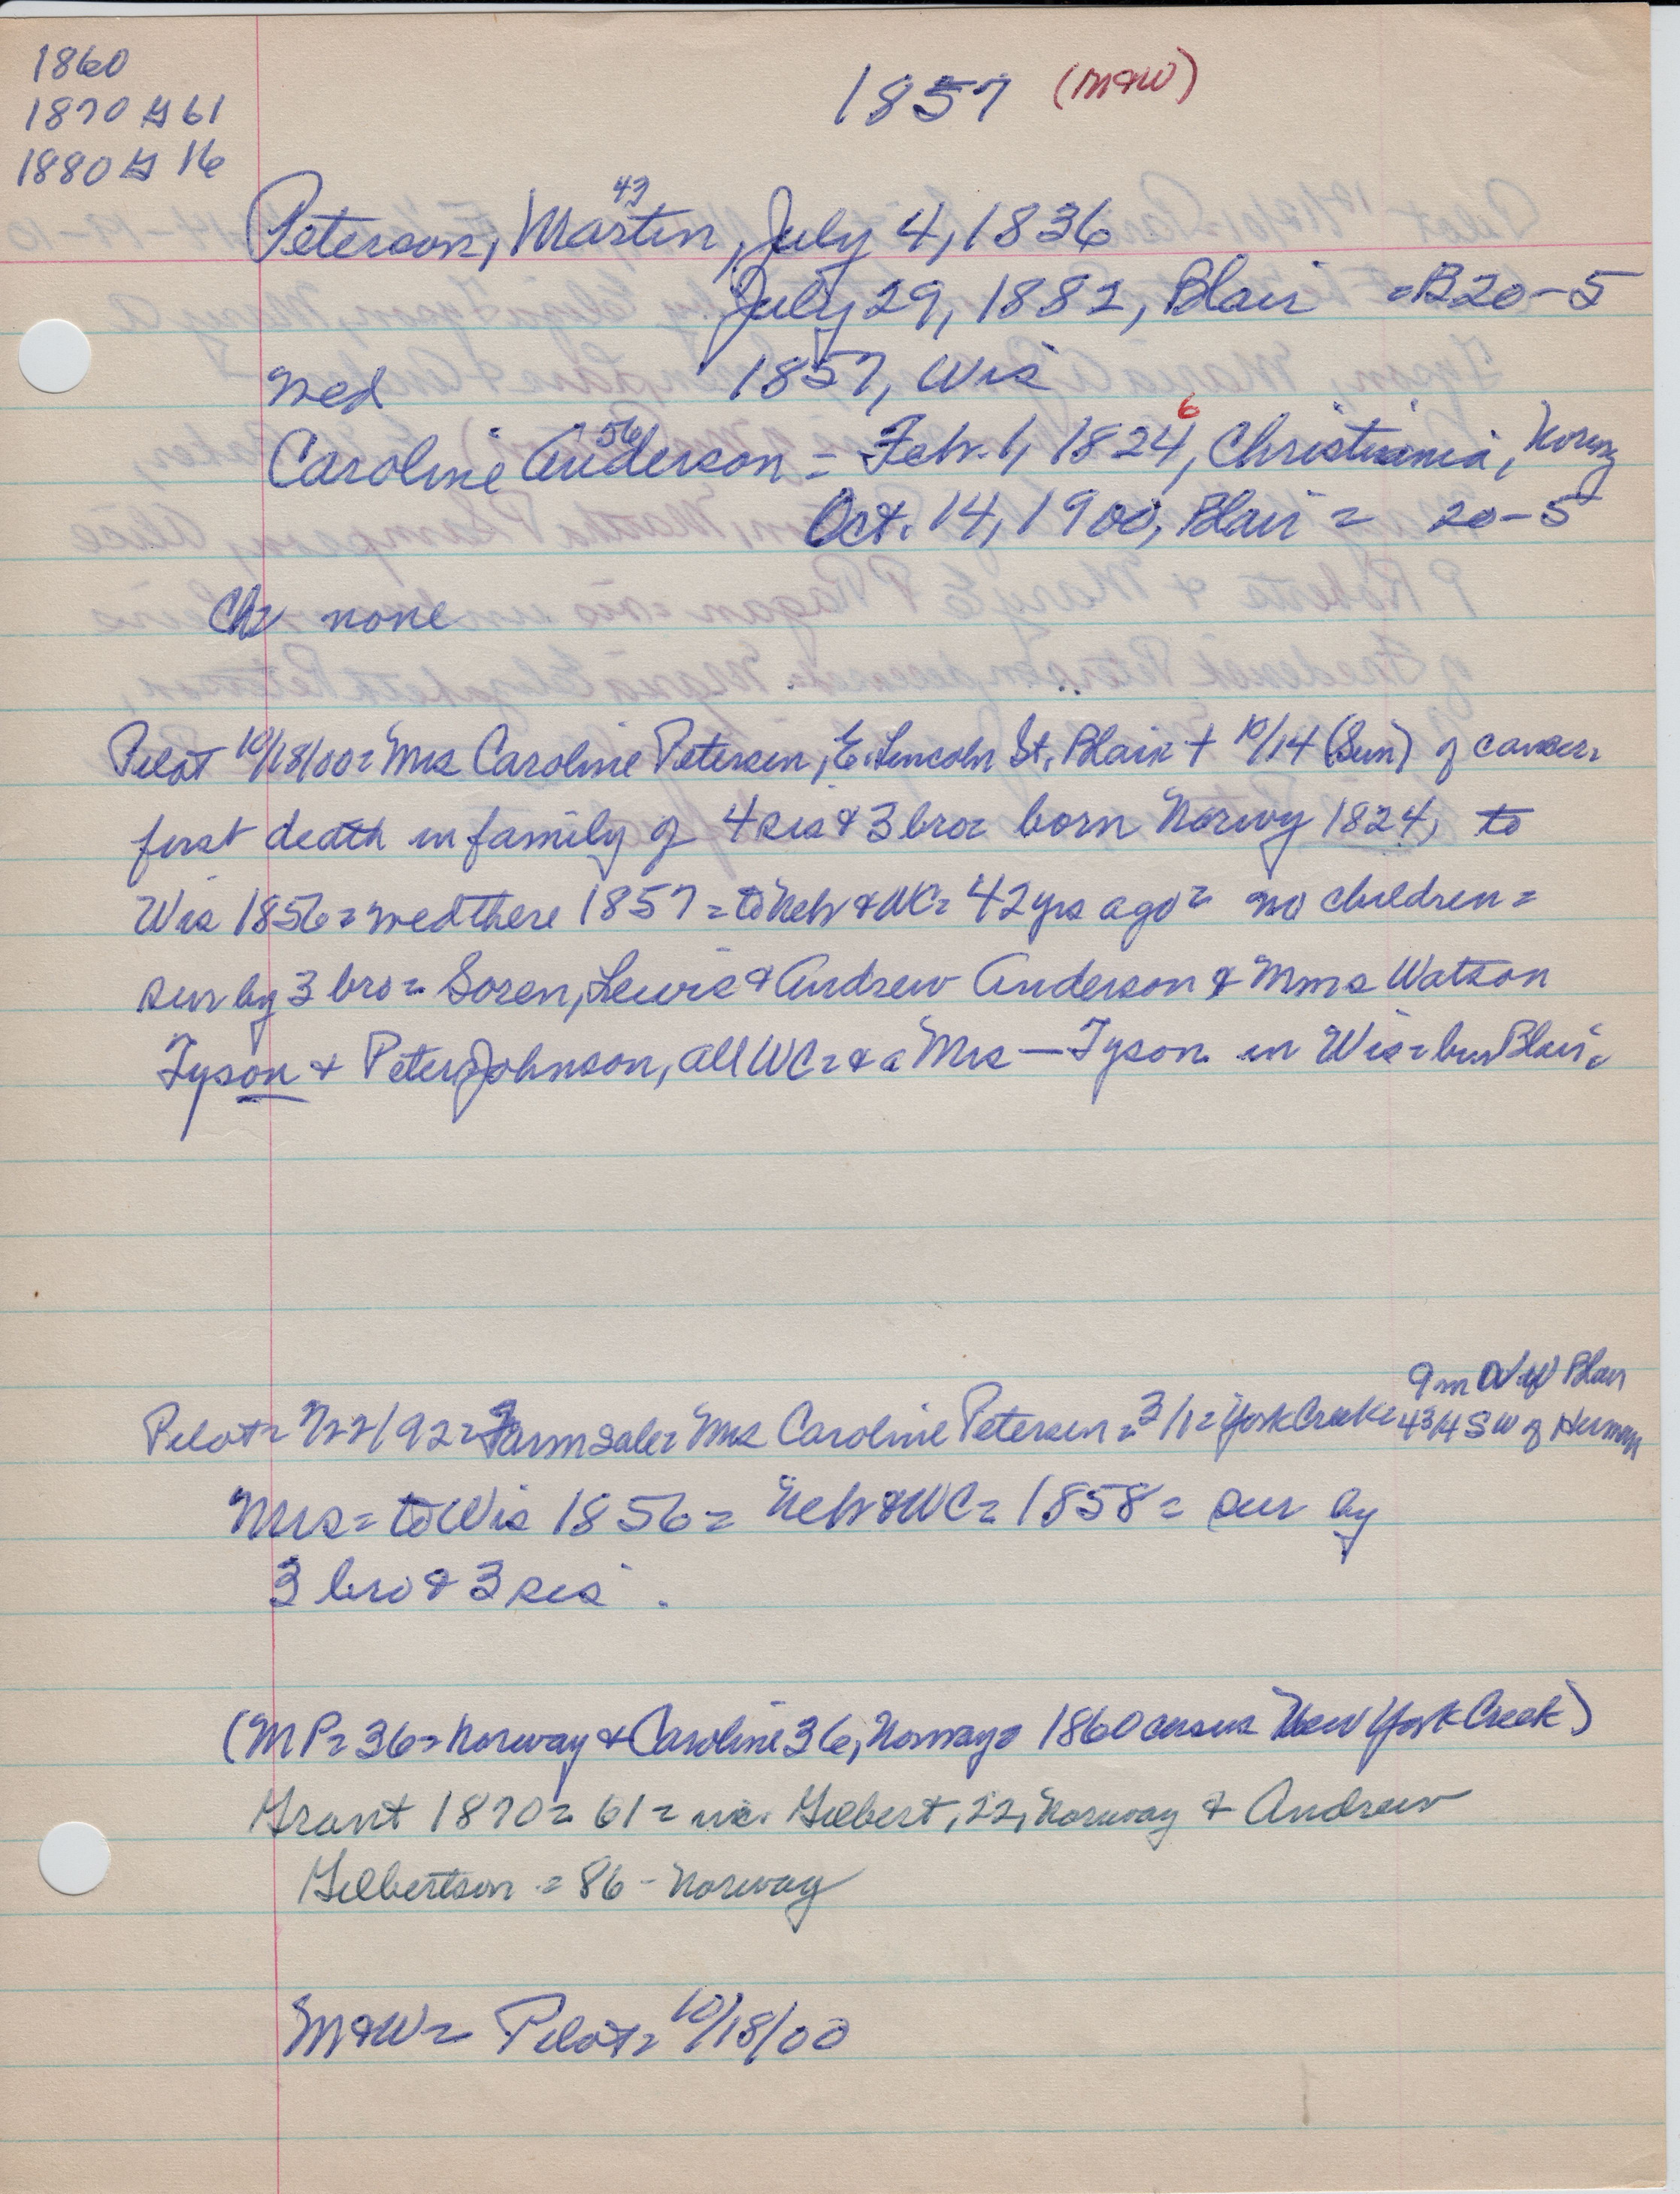 1860
1870 G 61
1880 G 16
1857 (M&W)
43
Peterson, Martin, July 4, 1836
July 29, 1882, Blair = B20-5
Wed 1857, Wis
56 6
Caroline Anderson = Feb. 1, 1824, Christiania, Norwy
Oct. 14, 1900, Blair = 20-5
Ch= none
Pilot 10/18/00= Mrs Caroline Petersen, E. Lincoln St, Blair + 10/14 (Sun) of cancer=
first death in family of 4 sis & 3 bro= born Norwy 1824, to
Wis 1856= wed there 1857 = to Neb & WC= 42 yrs ago= no children=
sur by 3 bro= Soren, Lewis & Andrew Anderson & Mms Watson
Tyson & Peter Johnson, all WC= & a Mrs — Tyson in Wis= bur Blair=
9 m NW Blair
Pilot= 2/92= Farm sale= Mrs Caroline Petersen= 3/1= York Creek= 4 3/4 SW of Herman
Mrs= to Wis 1856= Neb & WC= 1858= sur by
3 bro & 3 sis.
(MP= 36= Norway & Caroline 36, Norway= 1860 census New York Creek)
Grant 1870= 61= Gilbert, 22, Norway & Andrew
Gilbertson = 86 - Norway
M&W= Pilot= 10/18/00